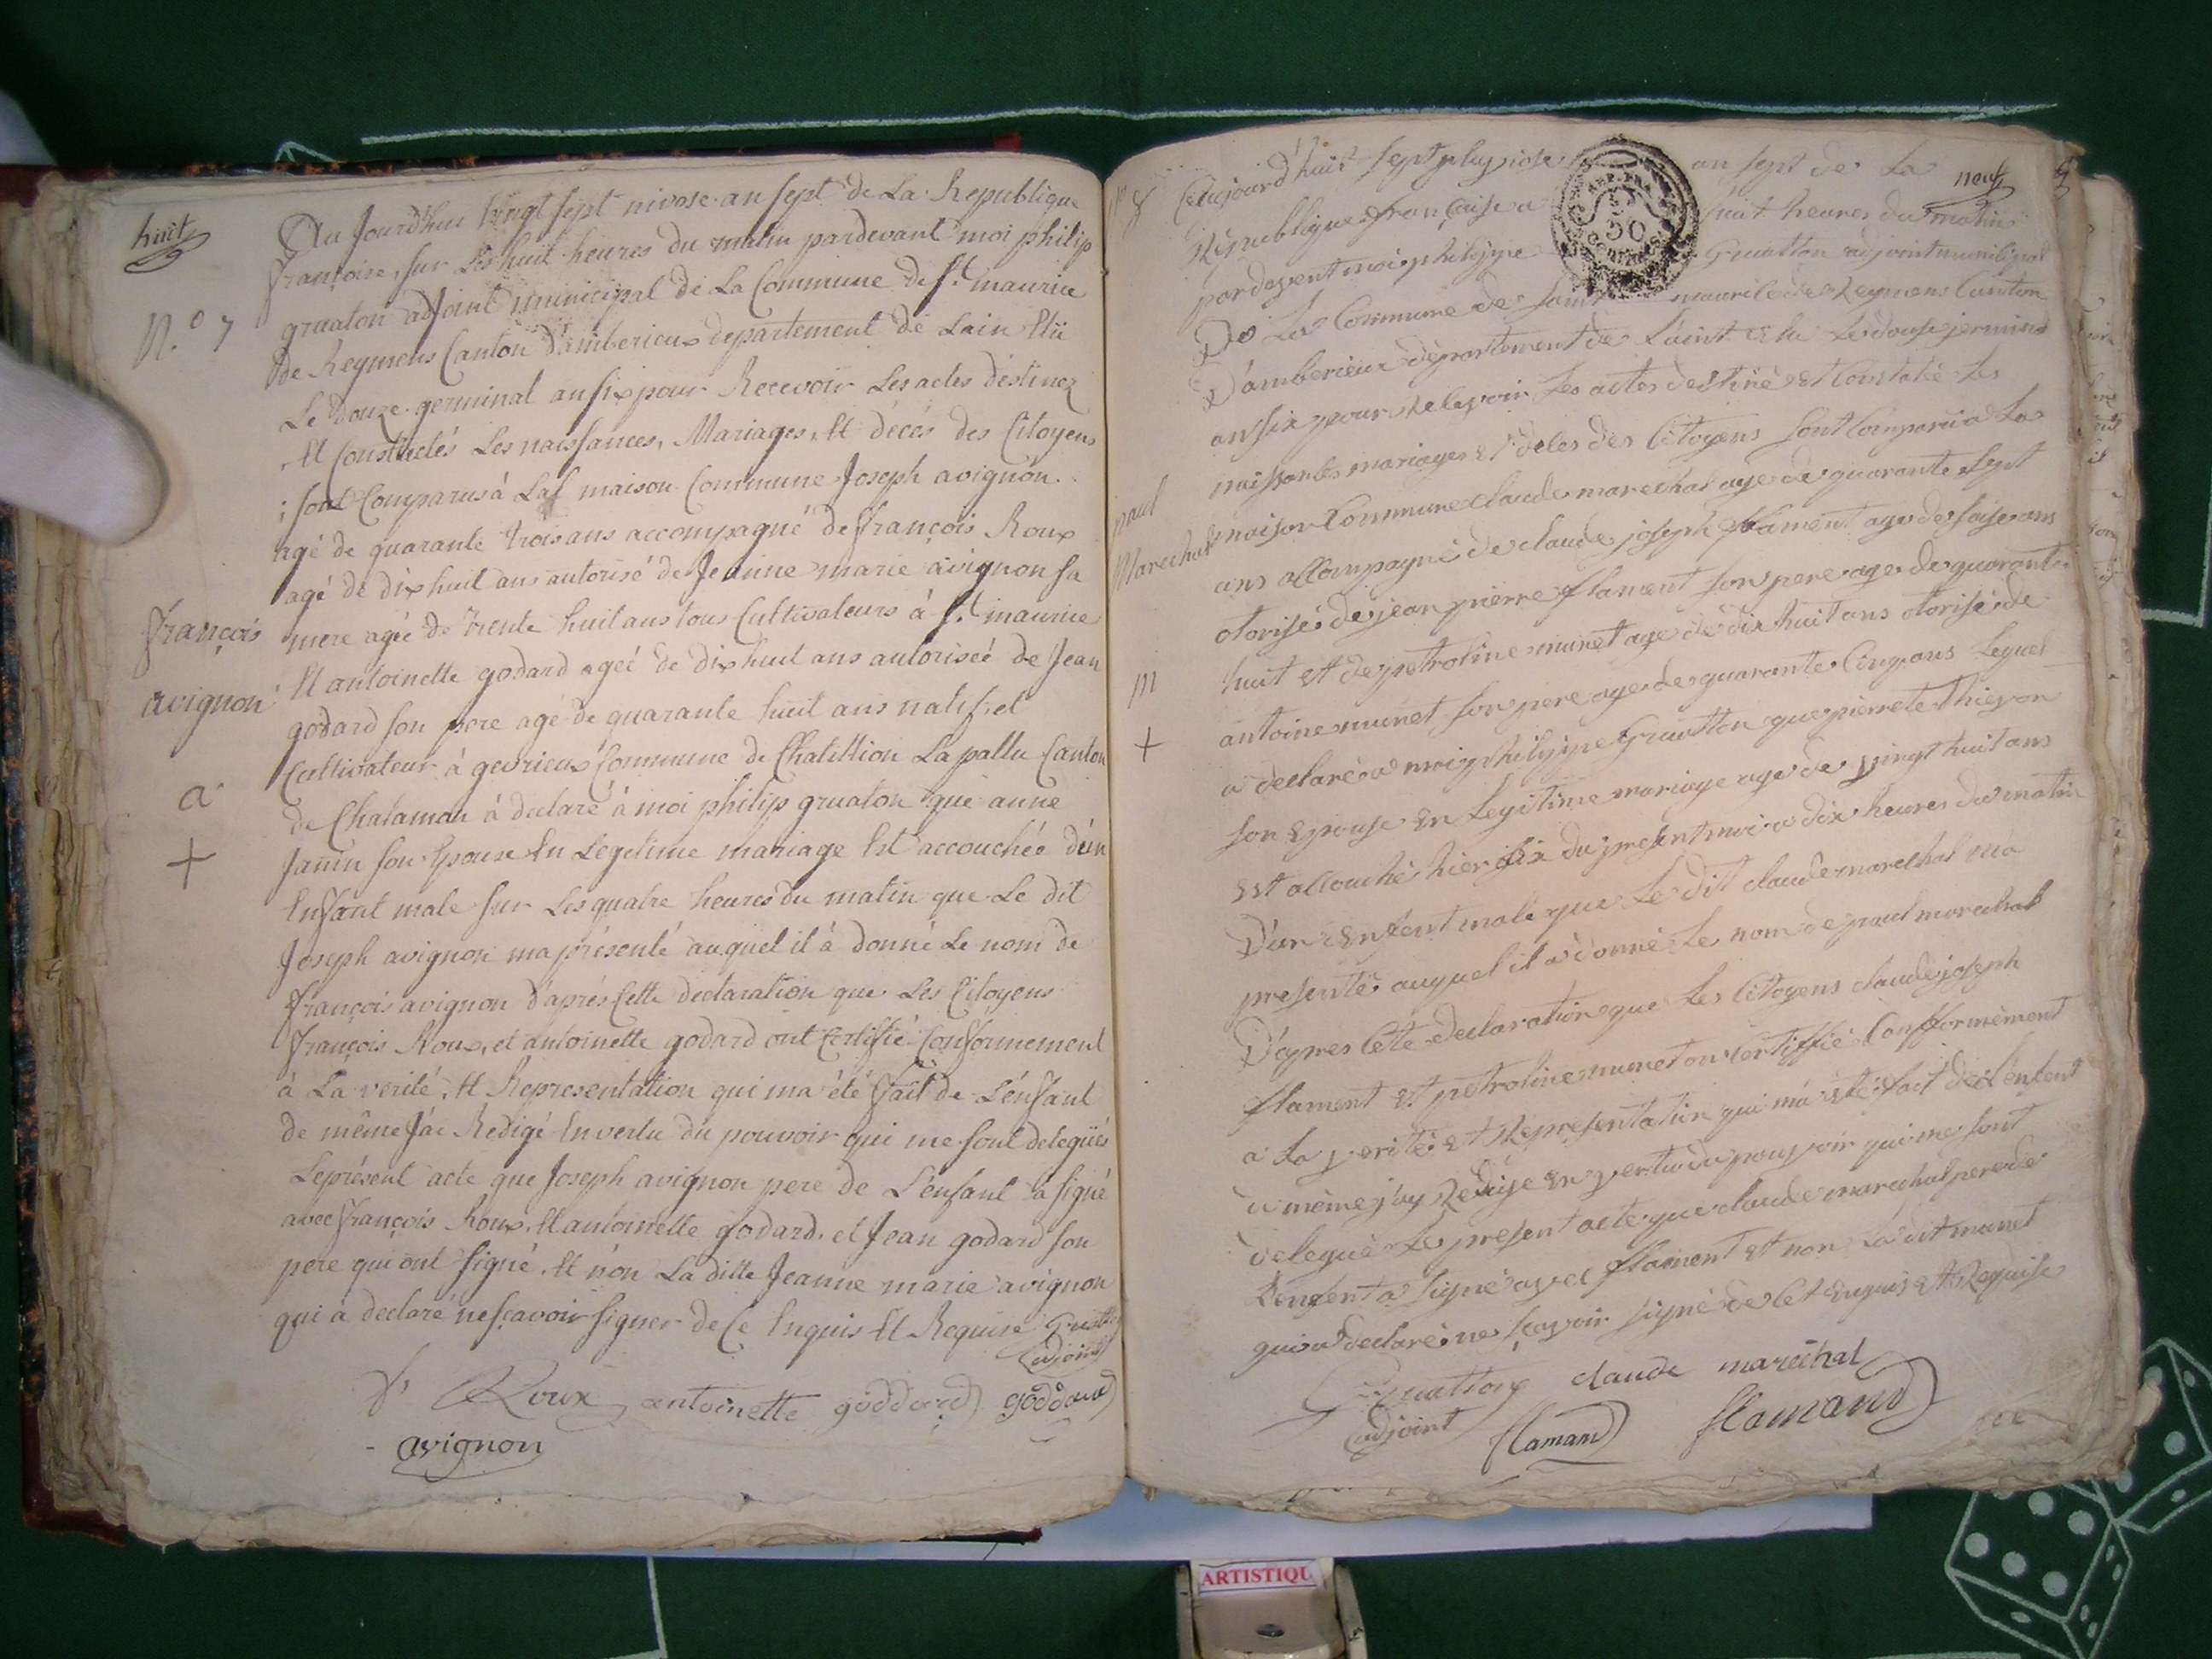 huit
N.° 7
françois
avignon
a
+
Au Jourd'hui vingt sept nivose an sept de La Republique
françoise, sur Les huit heures du matin pardevant moi philip
gruaton adjoint municipal de La Commune de st. maurice
de Reymens Canton d'amberieux departement de Lain Elü
Le douze germinal an six pour Recevoir Les actes destinez
Et Constactés Les naissances, Mariages, Et décés des Citoyens
sont Comparus à La maison Commune Joseph avignon
agé de quarante trois ans accompagné de françois Roux
agé de dix huit ans autorisé de Jeanne marie avignon sa
mere agée de trente huit ans tous Cultivateurs à st. maurice
Et antoinette godard ageé de dix huit ans autoriseé de Jean
godard son pere agé de quarante huit ans natif et
Cultivateur à gevrieux Commune de Chatillion La pallu Canton
de Chalamon à declaré à moi philip gruaton que anne
Janin son Epouse En Legitime mariage Est accouchée d'un
Enfant male sur Les quatre heures du matin que Le dit
Joseph avignon ma présenté auquel il à donné Le nom de
françois avignon d'aprés Cette declaration que Les Citoyens
françois Roux, et antoinette godard ont Certifié Conformement
à La verité, Et Representation qui ma été fait de L'énfant
de même J'ai Redigé En vertu du pouvoir qui me sont delegüés
Leprésent acte que Joseph avignon pere de L'énfant a signé
avec françois Roux, Et antoinette godard, et Jean godard son
pere qui ont signé, Et nón La ditte Jeanne marie avignon
qui à declaré nesçavoir signer de Ce Enquis Et Requise
adjoint
fs Roux antoinette goddard goddard
avignon
neuf
8
paul
Marechal
m
+
Cejourd'huit sept pluviose an sept de La
République française a huit heures du matin
pardevent moi philippe Gruatton adjoint municipal
De La Commune de saint maurice de Reymens Canton
D'amberieux département de L'aint elu Le douse jerminal
an six pour Recevoir Les actes destiné et Constaté Les
naissances mariages et deces des Citoyens sont Comparü a La
maison Commune claude marechal age de quarante sept
ans accompagné de claude joseph flament age de saise ans
otorisé de jean pierre flament son pere age de quarante
huit et de petroline munet age de dix huit ans otorisé de
antoine munet son pere age de quarante Cinq ans Lequel
a declaré a moi philippe Gruatton que pierrete thievon
son Epouse En Legitime mariage age de vingt huit ans
Est accouché hier six du present moi a dix heures du matin
D'un Enfent male que Le dit claude marechal m'a
presenté auquel il a donné Le nom de paul marechal
D'apres Cete declaration que Les Citoyens claude joseph
flament Et petroline munet on certiffié Confformément
a La verité et Representation qui m'a été fait de L'enfent
de même j'ay Redige En vertu du pouvoir qui me sont
delegué Le present acte que claude marechal pere de
L'enfent a signé avec flament et non La dit munet
qui a declaré ne sçavoir signé de Ce Enquis et Requise
Gruatton claude maréchal
adjoint flamand flamand
ARTISTIQU